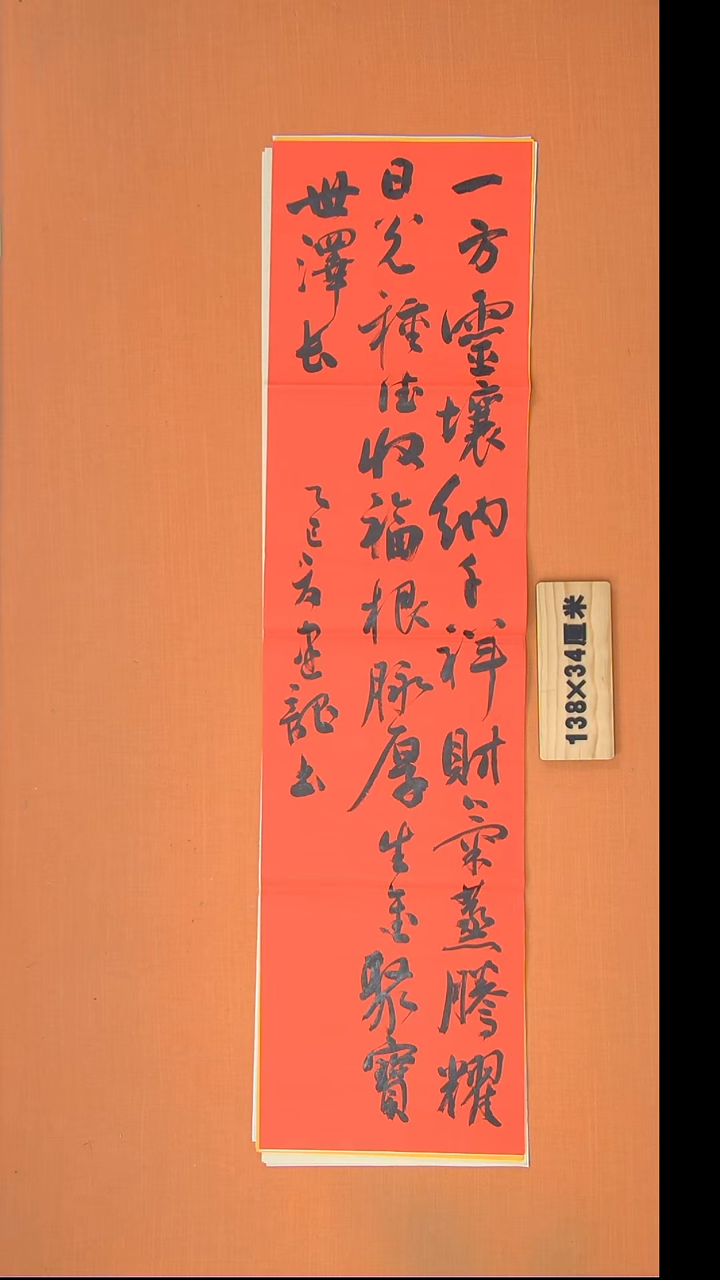 一方靈壤納千祥財氣蒸騰耀
日光種德收福根脉厚生金聚寶
世澤长
乙巳秀建龍书
138×34厘米